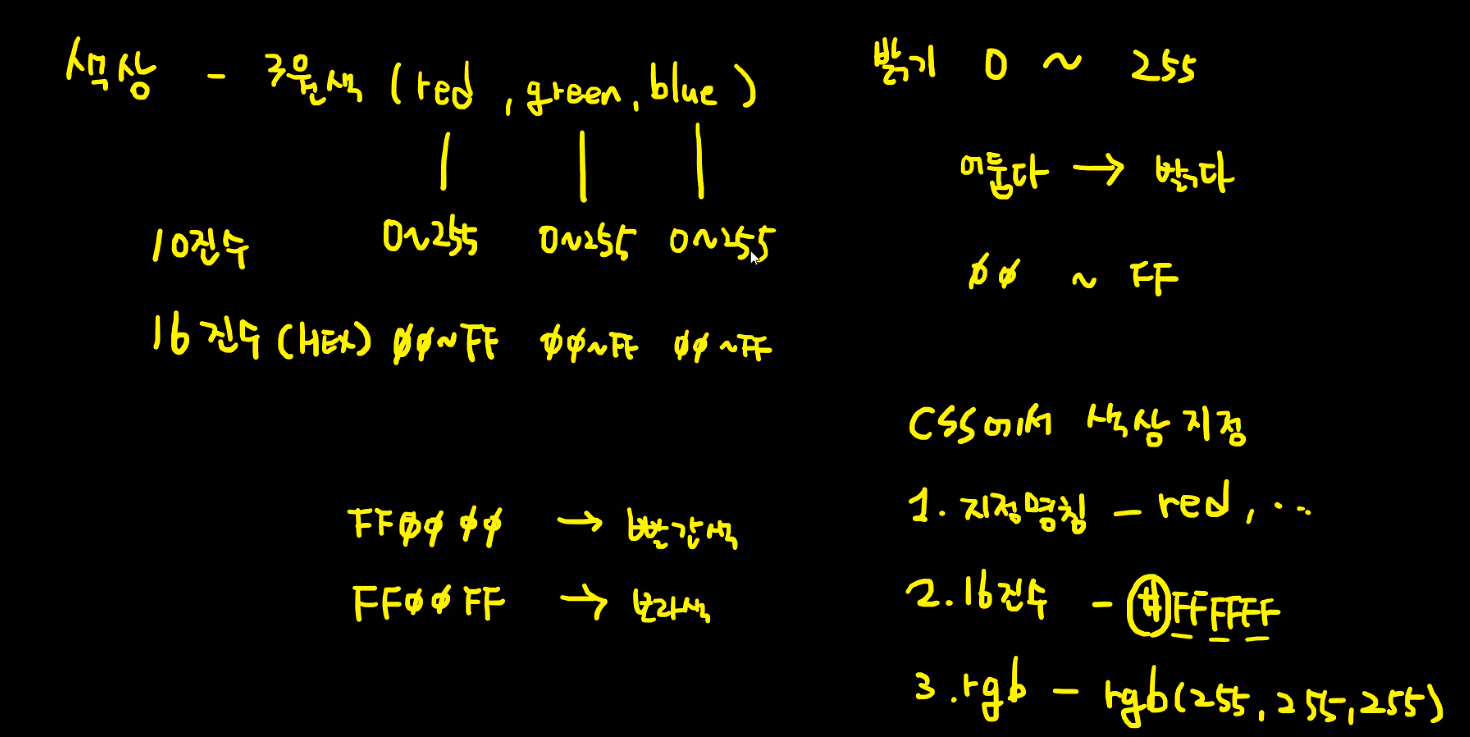 색상 - 3원색 (red, green, blue)
10진수 0~255 0~255 0~255
16진수(HEX) 00~FF 00~FF 00~FF
FF0000 →빨간색
FF00FF → 보라색
밝기 0 ~ 255
어둡다 → 밝다
00 ~ FF
CSS에서 색상 지정
1. 지정명칭 - red, ...
2. 16진수 - #FFFFFF
3. rgb - rgb(255, 255, 255)